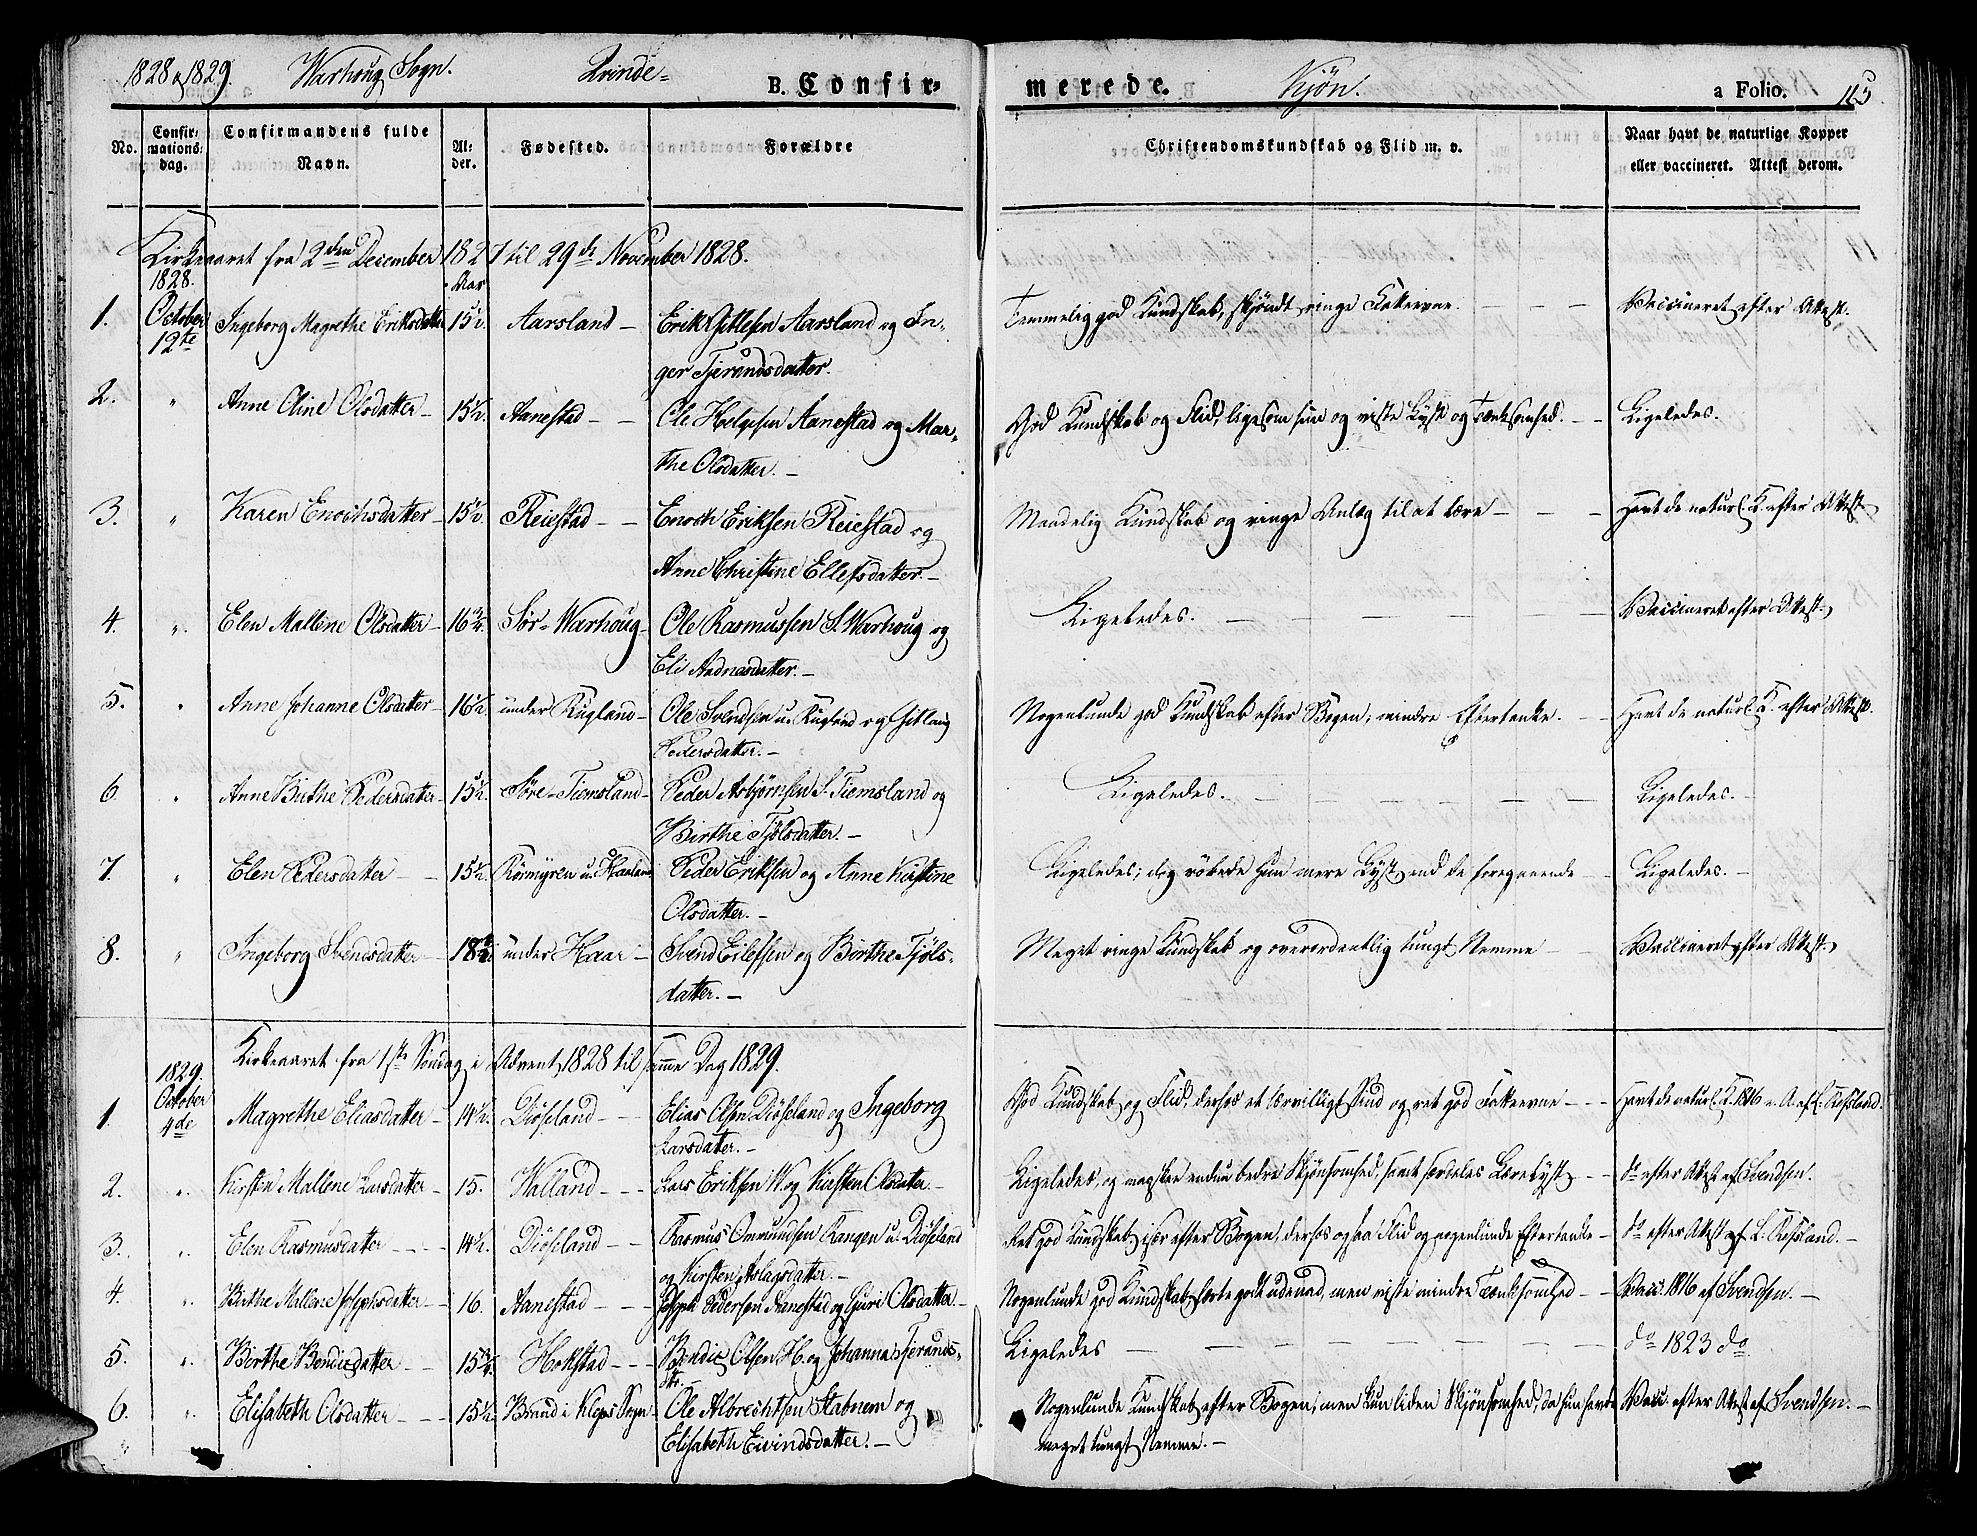 1828 & 1829. Warhoug Sogn. Qvinde- B. Confir- merede. Kjøn. a Folio. 115.
No. Confir- mations- dag. Confirmandens fulde Navn. Al- der. Fødested. Forældre Christendomskundskab og Flid m. v. Naar havt de naturlige Kopper eller vaccineret. Attest derom.
Kirkeaaret fra 2den December 1827 til 29de November 1828.
1828. Aar
1. October 12te Ingeborg Magrethe Eriksdatter 15½. Aarsland – Erik Gitlesen Aarsland og In- Temmelig god Kundskab, skjøndt ringe Fatteevne. – – – Vaccineret efter Attest.
ger Tjerandsdatter.
2. " Anne Oline Olsdatter – 15½. Aanestad – – Ole Helgesen Aanestad og Mar- God Kundskab og Flid, ligesom hun og viste Lyst og Tænksomhed. – – Ligeledes.
the Olsdatter. –
3. " Karen Enochsdatter – 15½. Reiestad – – Enoch Eriksen Reiestad og Maadelig Kundskab og ringe Anlæg til at lære – – – Havt de naturl. K. efter Attest
Anne Christine Ellefsdatter. –
4. " Elen Mallene Olsdatter – 16¾. Sør-Warhoug – Ole Rasmussen S. Warhoug og Ligeledes. – – – – – Vaccineret efter Attest
Eli Aadnesdatter. –
5. " Anne Johanne Olsdatter – 16½. under Rugland – Ole Svendsen u. Rugland og Gitlaug Nogenlunde god Kundskab efter Bogen, mindre Eftertanke. – – Havt de naturl. K. efter Attest.
Pedersdatter. –
6. " Anne Birthe Pedersdatter – 15½. Søre-Tiemsland – Peder Asbjørnsen S. Tiemsland og Ligeledes. – – – – – Ligeledes. –
Birthe Tjølsdatter. –
7. " Elen Pedersdatter – – 15½. Rørmyren u. Haaland Peder Eriksen og Anne Kirstine Ligeledes; dog røbede hun mere Lyst end de foregaaende – – Ligeledes. –
Olsdatter. –
8. " Ingeborg Svendsdatter – 18¾. under Haar – Svend Eilefsen og Birthe Tjøls- Meget ringe Kundskab og overordentlig tungt Nemme – – Vaccineret efter Attest
datter. –
Kirkeaaret fra 1ste Søndag i Advent 1828 til samme Dag 1829.
1829.
1. October 4de Magrethe Eliasdatter – 14½. Diøseland – – Elias Olsen Diøseland og Ingeborg God Kundskab og Flid, derhos et lærvilligt Sind og ret god Fatteevne – – – Havt de naturl. K. 1816 e. A. af L. Røsland.
Larsdatter. –
2. ". Kirsten Mallene Larsdatter – 15. Walland – – – Lars Eriksen W. og Kirsten Olsdatter – Ligeledes, og maaskee endnu bedre Skjønsomhed, samt særdeles Lærelyst – – do efter Attest af Svendsen.
3. ". Elen Rasmusdatter – – – 14½. Diøseland – – Rasmus Ommundsen Rangen u. Diøseland Ret god Kundskab især efter Bogen, derhos ogsaa Flid og nogenlunde Eftertanke – do efter Attest af L. Røsland. –
og Kirsten Aslagsdatter. –
4. ". Birthe Mallene Josephsdatter – – 16. Aanestad – – – Joseph Pedersen Aanestad og Guri Olsdatter – Nogenlunde god Kundskab, lærte godt udenad, men viste mindre Tænksomhed – – Vacc. 1816 af Svendsen. –
5. ". Birthe Bendicsdatter – – 15¾. Hofstad – – – Bendic Olsen H. og Johanna Tjerands- Ligeledes – – – – – – do 1823 do
dtr. –
6. ". Elisabeth Olsdatter – – – 15½. Brand i Kleps Sogn – Ole Albrechtsen Stabnem og Nogenlunde Kundskab efter Bogen, men kun liden Skjønsomhed, da hun havde Vacc. efter Attest af Svendsen. –
Elisabeth Eivindsdatter. – meget tungt Nemme. –